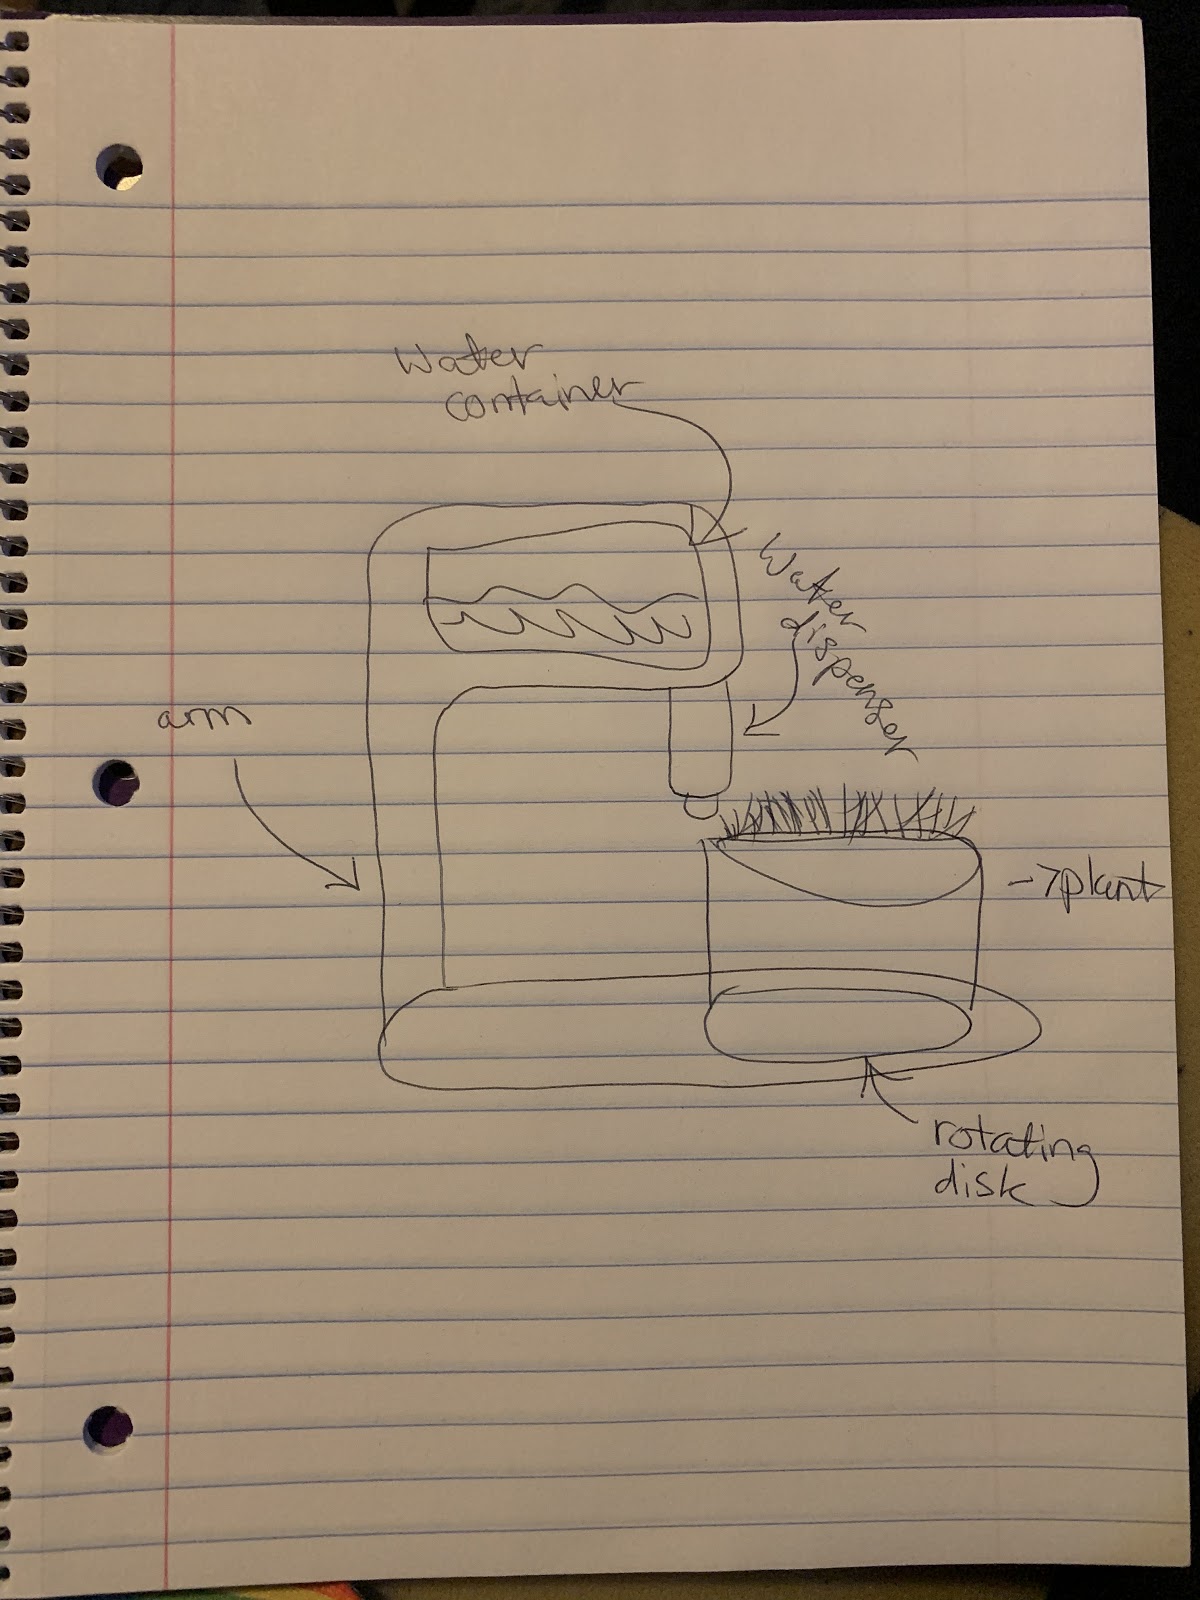 Water
container
Water
dispenser
arm
→plant
rotating
disk